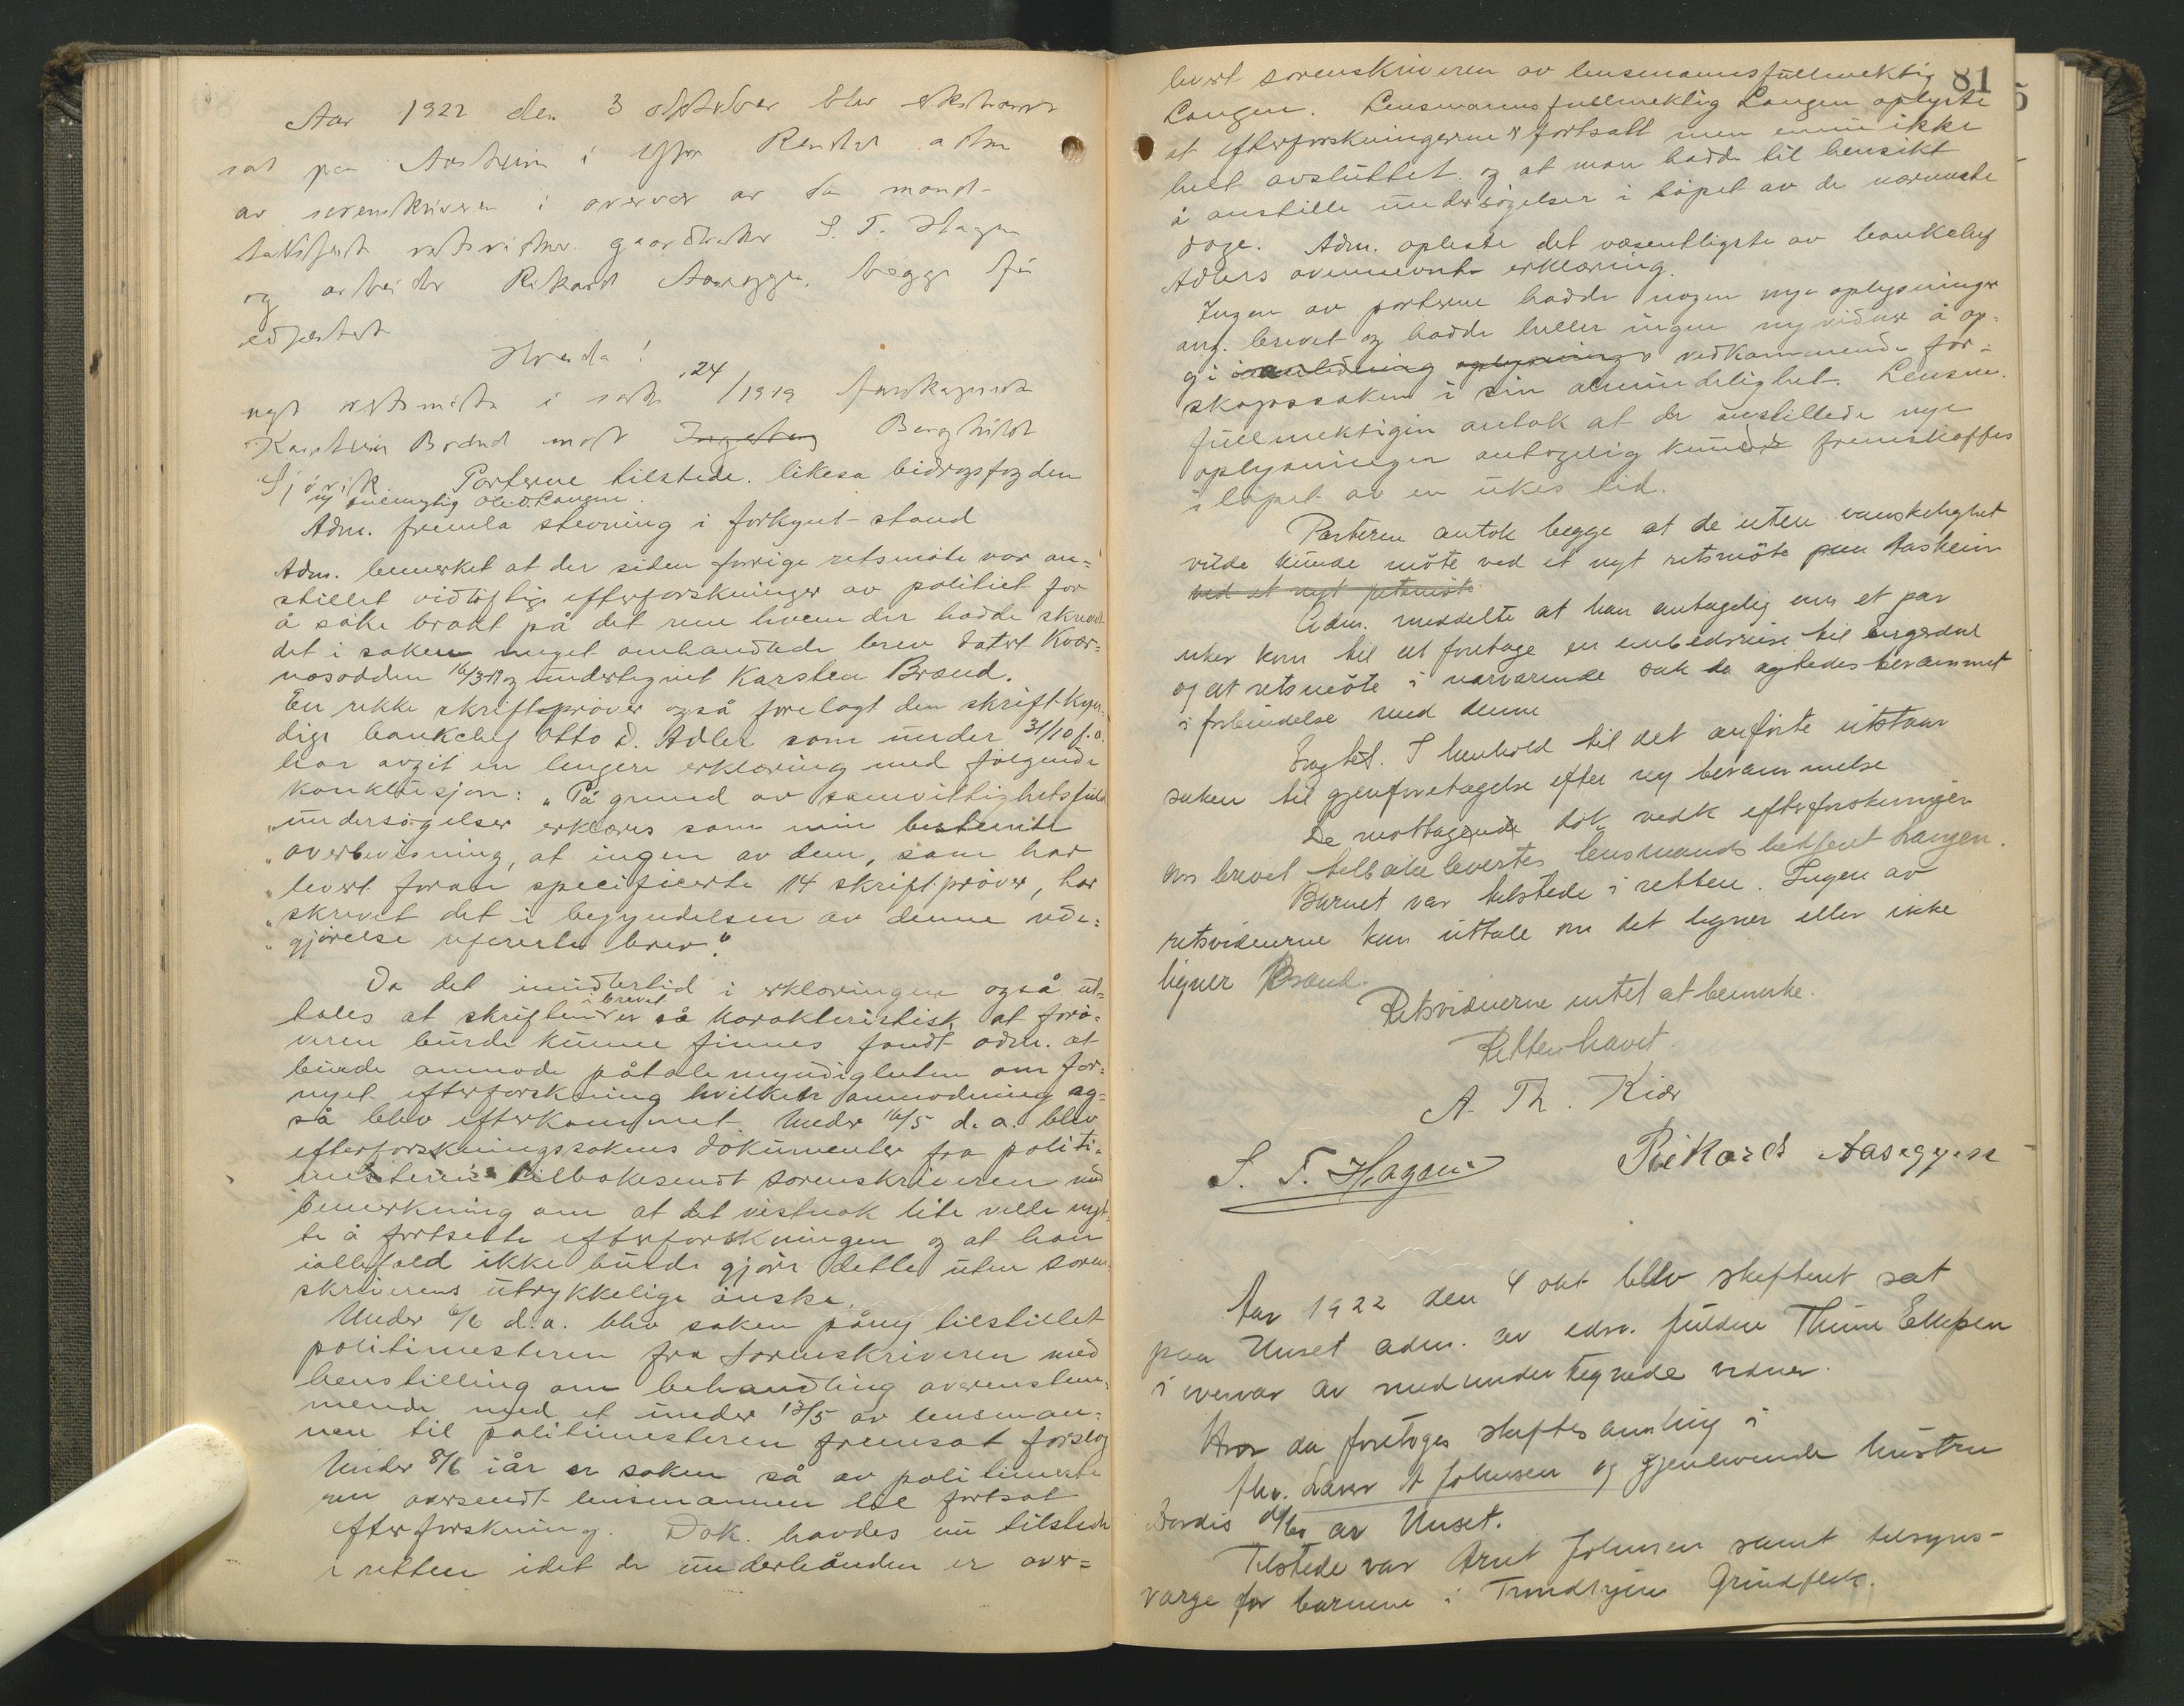 Aar 1922 den 3 oktober blev ekstraret
sat paa Aasheim i Ytre Rendal adm
av sorenskriveren i overvær av de mand-
talsførte retsvidner gaardbruker S. T. Hagen
og arbeider Rikard Aaseggen, begge før
edfæstet
Hvorda!
nyt retsmöte i sak 24/1919 farskapssak
Karsten Brænd mot Ingeborg Bergthild
Sjövik Parterne tilstede, likesa bidragsfogden
ved fuldmægtig Ole D. Langen.
Adm. fremla stevning i forkynt stand
Adm. bemerket at der siden forrige retsmöte var an=
stillet vidlöftige efterforskninger av politiet for
å söke bragt på det rene hvem der hadde skrevet
det i saken meget omhandlede brev datert Kvær=
nosodden 16/3-19 og undertegnet Karsten Brænd.
En rekke skriftspröver også forelagt den skriftkyn=
dige bankchef Otto D. Adler som under 31/10 f.a.
har avgit en lengere erklæring med fölgende
konklusjon: "På grund av samvittighetsfulde
"undersögelser erklæres som min bestemte
"overbevisning, at ingen av dem, som har
"levert foran specificerte 14 skriftpröver, har
"skrevet det i begyndelsen av denne rede=
"gjörelse refererte brev".
Da det imidlertid i erklæringen også ut=
tales at skriften i brevet er så karakteristisk at forö=
veren burde kunne finnes fandt adm. at
burde anmode påtalemyndigheten om for=
nyet efterforskning hvilken anmodning og=
så blev efterkommet. Under 16/5 d. a. blev
efterforskningssakens dokumenter fra politi=
mesteren tilbakesendt sorenskriveren med
bemerkning om at det vistnok lite ville nyt=
te å fortsette efterforskningen og at han
ialfald ikke burde gjöre dette uten soren=
skriverens utrykkelige önske.
Under 6/6 d.a. blev saken påny tilstillet
politimesteren fra sorenskriveren med
henstilling om behandling overenstem=
mende med et under 13/5 av lensman=
nen til politimesteren fremsat forslag
Under 8/6 iår er saken så av politimeste
ren oversendt lensmannen til fortsat
efterforskning. Dok. havdes nu tilstede
i retten idet de underhånden er over=
81
levert sorenskriveren av lensmannsfullmektig
Langen. Lensmannsfullmektig Langen oplyste
at efterforskningerne er fortsatt men ennu ikke
helt avsluttet og at man hadde til hensikt
å anstille undersögelser i löpet av de nærmeste
dage. Adm. opleste det væsentligste av bankchef
Adlers ovennevnte erklæring.
Ingen av parterne hadde nogen nye oplysninger
ang. brevet og hadde heller ingen ny vidner å op=
gi i anledning oplysninger vedkommende far=
skapssaken i sin almindelighet. Lensm.
fullmektigen antok at de anstillede nye
oplysninger antagelig kunde fremskaffes
i löpet av en ukes tid.
Parterne antok begge at de uten vanskelighet
vilde kunde möte ved et nyt retsmöte paa Aasheim
ved et nyt retsmöte
Adm. meddelte at han antagelig om et par
uker kom til at foretage en embedsreise til engerdal
og at retsmöte i nærværende sak da agtedes berammet
i forbindelse med denne
Eragtet. I henhold til det anförte utstaar
saken til gjenforetagelse efter ny berammelse
De mottagende dok vedk efterforskningen
om brevet tilbakelevertes lensmands betjent Langen.
Barnet var tilstede i retten. Ingen av
retsvidnerne kan uttale om det ligner eller ikke
ligner Brænd.
Retsvidnerne intet at bemerke.
Retten hævet.
A. Th. Kiær
S. T. Hagen Rikard Aaseggen
Aar 1922 den 4 okt blev skifteret sat
paa Unset adm. av edsv. fuldm Thune Ellefsen
i overvær av medundertegnede vidner.
Hvor da foretoges skiftesamling i
Lars A Johnsen og gjenlevende hustru
av Unset.
Tilstede var Arnt Johnsen samt tilsyns-
værge for barnene i Grindflek.